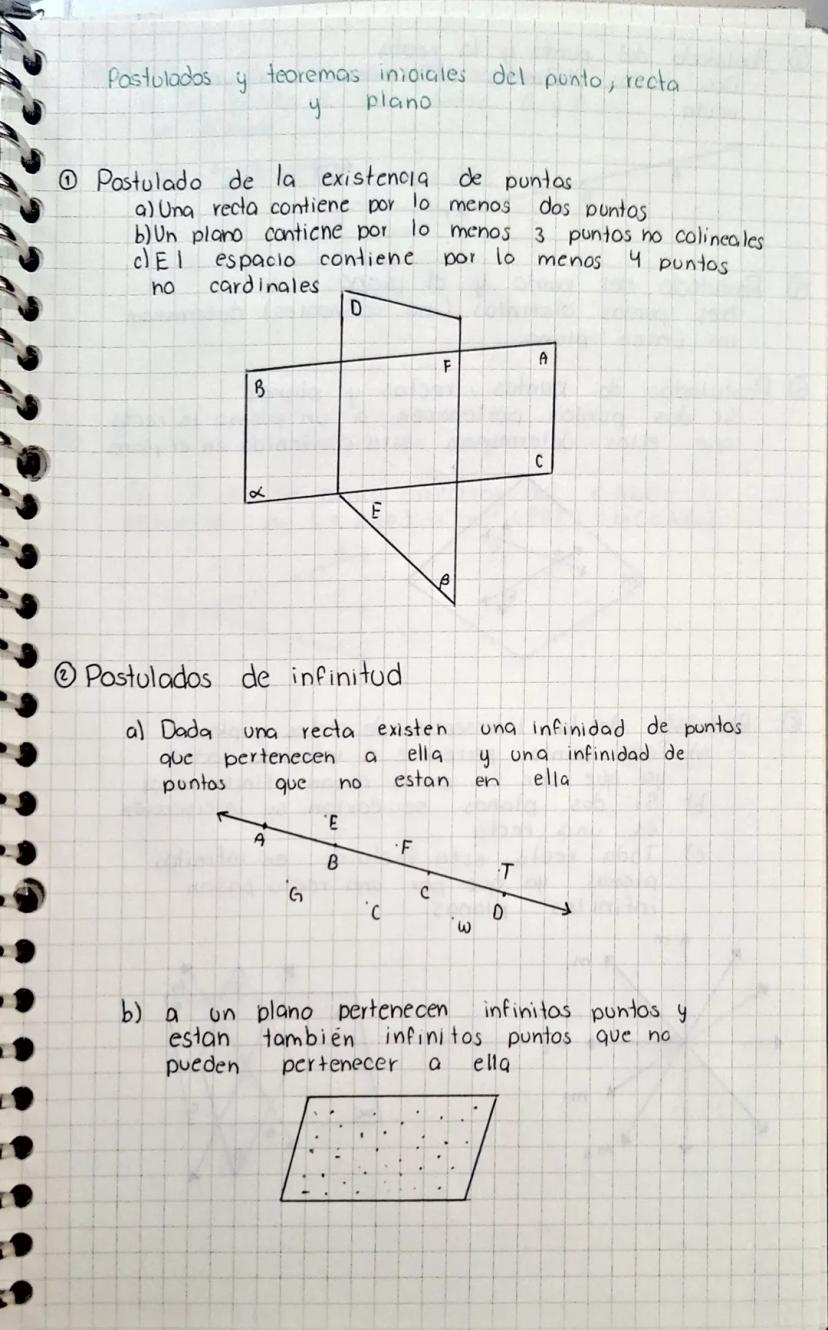 Postulados y teoremas inioiales del punto, recta
y plano
① Postulado de la existencia de puntos
a) Una recta contiene por lo menos dos puntos
b) Un plano contiene por lo menos 3 puntos no colineales
c) El espacio contiene por lo menos 4 puntos
no cardinales
D
F A
B
C
α
E
β
② Postulados de infinitud
a) Dada una recta existen una infinidad de puntos
que pertenecen a ella y una infinidad de
puntos que no estan en ella
E
A
F
B
T
G C
C D
W
b) a un plano pertenecen infinitos puntos y
estan también infinitos puntos que no
pueden pertenecer a ella